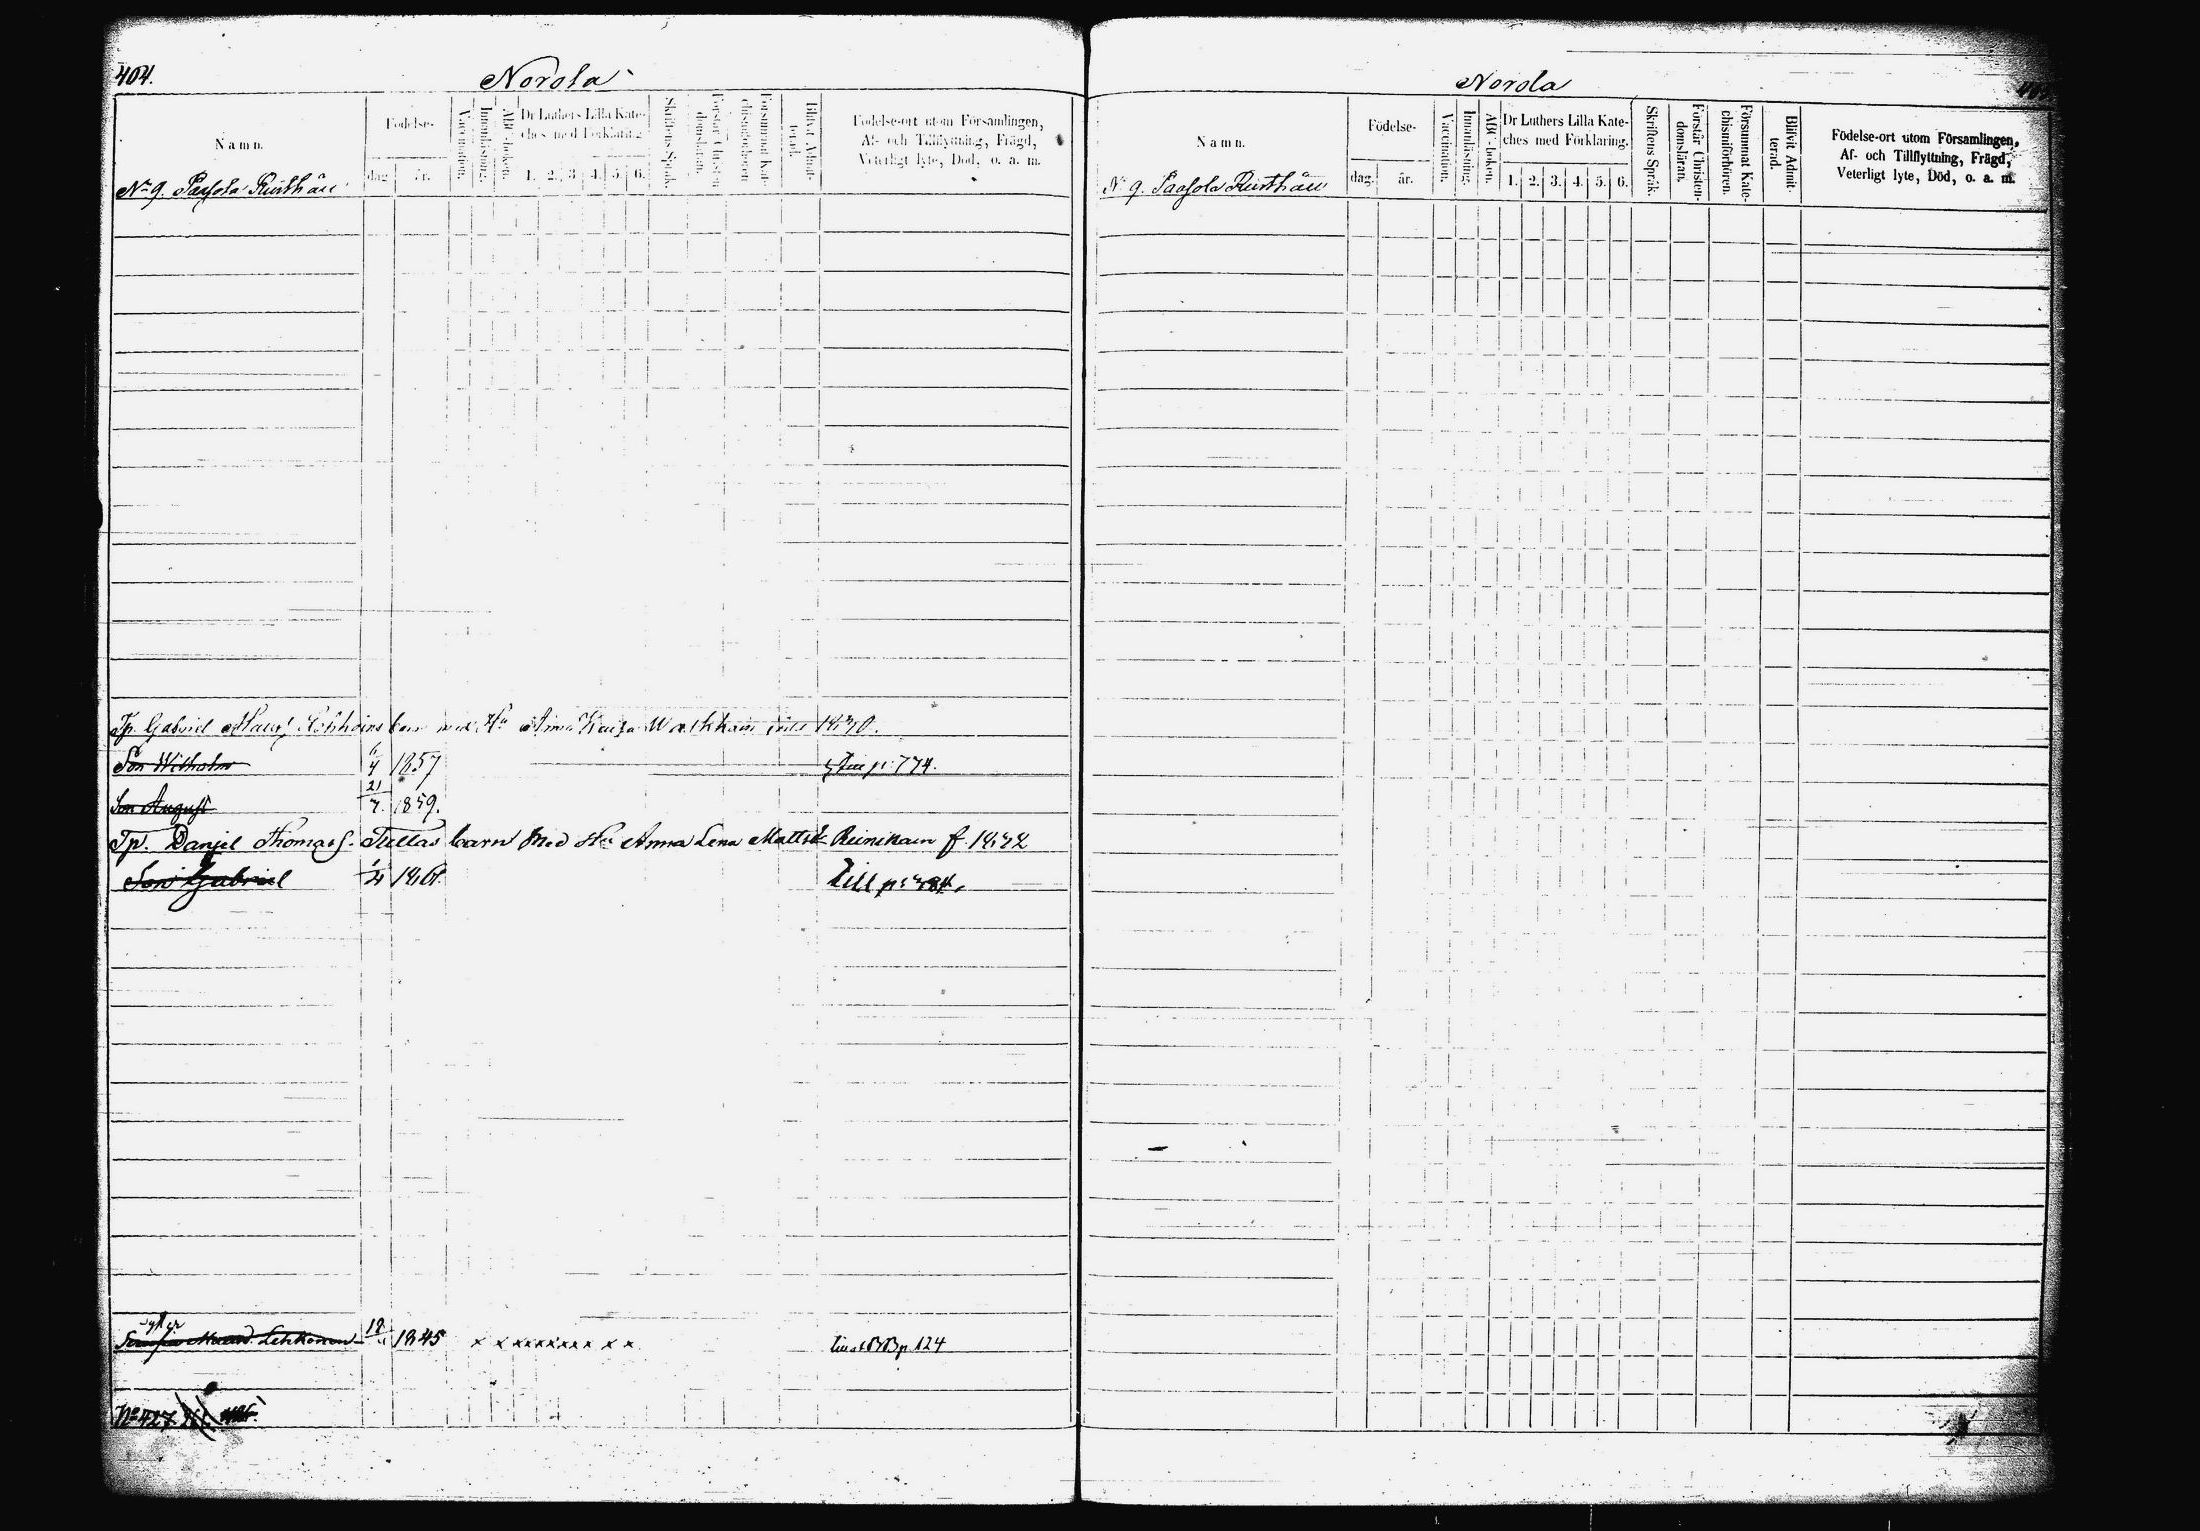 404.
Norola
Namn.
Födelse-
dag.
år.
Vaccination.
Innanläsning.
ABC-boken.
Dr Luthers Lilla Kate-
ches med Förklaring.
1. 2. 3. 4. 5. 6.
Skriftens Språk.
Förstår Christen-
domsläran.
Försummat Kate-
chismiförhören.
Blifvit Admit-
terad.
Födelse-ort utom Församlingen,
Af- och Tillflyttning, Frägd,
Veterligt lyte, Död, o. a. m.
No 9. Paasola Rusthåll
Tp. Gabriel barn med Anna Kaisa 1830.
Son Wilhelm 6/4 1857 p. 774.
Son August 21/7. 1859.
Tp. Danjel Thomass. barn med Anna Lena Mattsd. Reinikain f. 1832
Son Gabriel 1861. Till p.
Syster
Lehkonen 18 1845 x x x x x x x x x x x p. 124
No 427
Norola
Namn.
Födelse-
dag.
år.
Vaccination.
Innanläsning.
ABC-boken.
Dr Luthers Lilla Kate-
ches med Förklaring.
1. 2. 3. 4. 5. 6.
Skriftens Språk.
Förstår Christen-
domsläran.
Försummat Kate-
chismiförhören.
Blifvit Admit-
terad.
Födelse-ort utom Församlingen,
Af- och Tillflyttning, Frägd,
Veterligt lyte, Död, o. a. m.
No 9. Paasola Rusthåll